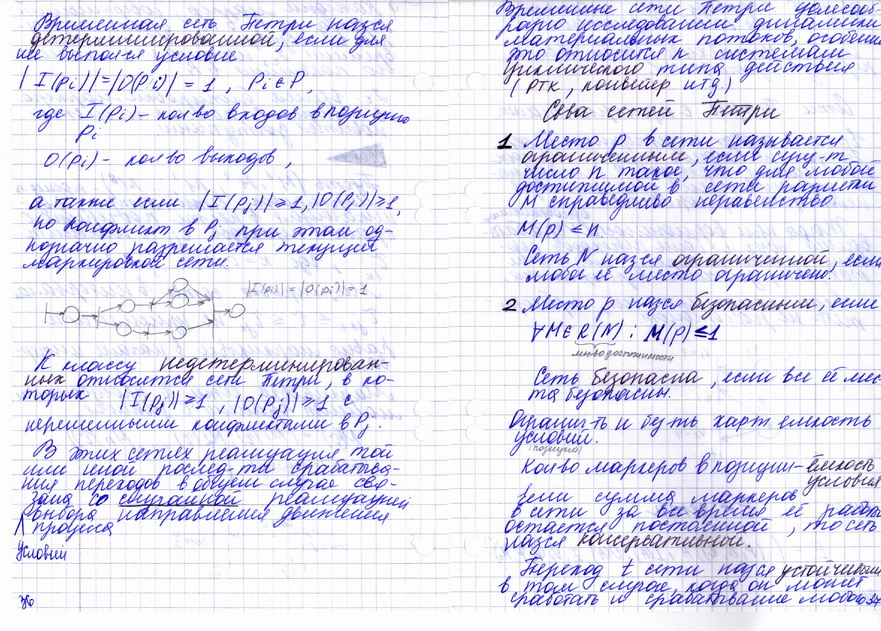 Временная сеть Петри назся
детерминированной, если для
неё выполся условие
|I(pi)|=|O(pi)| = 1 , pi ∈ P,
где I(pi) - кол во входов в позицию
pi
O(pi) - кол во выходов ,
а также если |I(pj)| ≥ 1, |O(Pj)| ≥ 1,
но конфликт в Pj при этом од-
нозначно разрешается текущей
маркировкой сети.
|I(pi)| = |O(pi)| = 1
К классу недетерминирован-
ных относится сети Петри, в ко-
торых |I(pj)| ≥ 1 , |O(Pj)| ≥ 1 с
нерешенными конфликтами в Pj.
В этих сетях реализация той
или иной послед-ти срабатыва-
ния переходов в общем случае свя-
зана со случайной реализацией
выбора направления движения
процесса
Условии
36
Временные сети Петри целесооб
разно исследовании динамики
материальных потоков, особенно
это относится к системам
циклического типа действия
(РТК, конвейер итд.)
Свва сетей Петри
1 Место p в сети называется
ограниченным, если сущ-т
число n такое, что для любой
достижимой в сети разметки
M справедливо неравенство
M(p) ≤ n
Сеть N назся ограниченной, если
любое её место ограничено.
2 Место p назся безопасным, если
∀M ∈ R(N) : M(p) ≤ 1
мн во достижимости
Сеть безопасна, если все её мес
та безопасны.
Огранич-ть и без-ть харт емкость
условий.
(позиций)
Кол во маркеров в позиции - ёмкость
условия
Если сумма маркеров
в сети за все время её работы
остается постоянной, то сеть
назся консервативной.
Переход t сети назся устойчивым
в том случае, когда он может
сработать и срабатывание любого
37